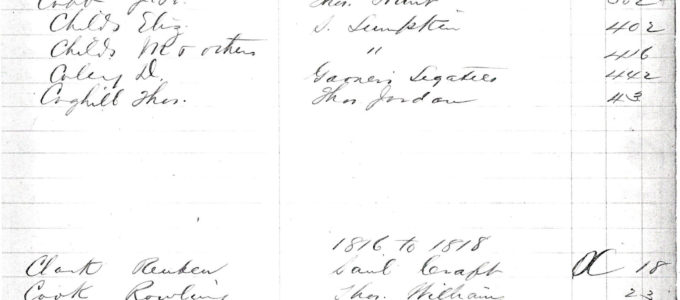 Childs Eliz. S. Lumpkin 402
Childs M & others " 416
Coley D. Garners Legatees 442
Coghill Thos. Thos Jordan 43
1816 to 1818
Clark Reuben Saml Craft A 18
Cook Rowling Thos. William 23